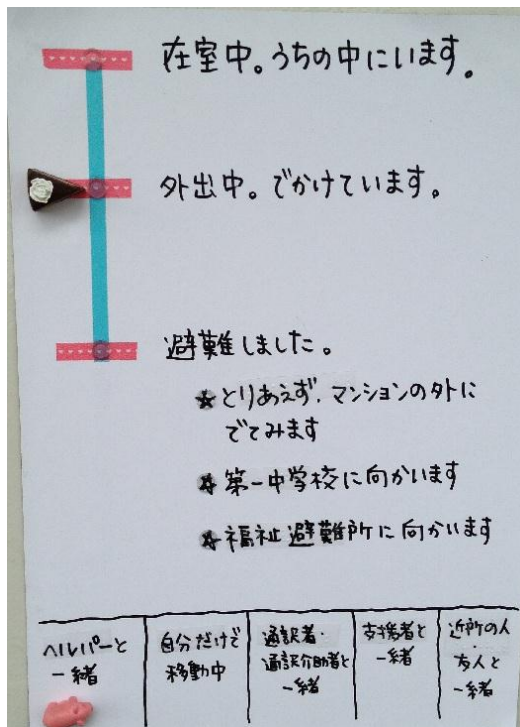 在室中。うちの中にいます。
外出中。でかけています。
避難しました。
★とりあえず、マンションの外に
でてみます
★第一中学校に向かいます
★福祉避難所に向かいます
ヘルパーと
一緒
自分だけで
移動中
通訳者・
通訳介助者と
一緒
支援者と
一緒
近所の人
・
友人と
一緒